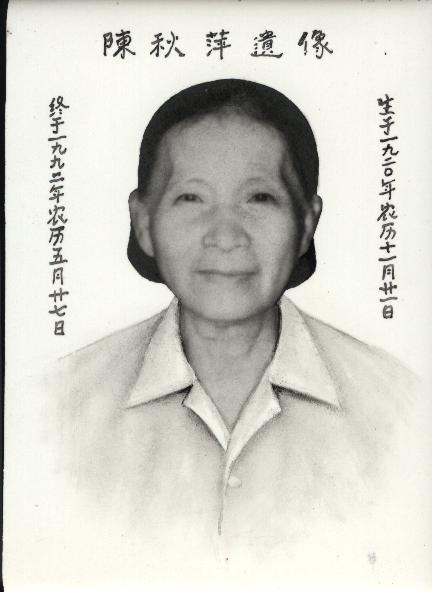 陳秋萍遺像
生于一九二〇年农历十一月廿一日
终于一九九二年农历五月廿七日